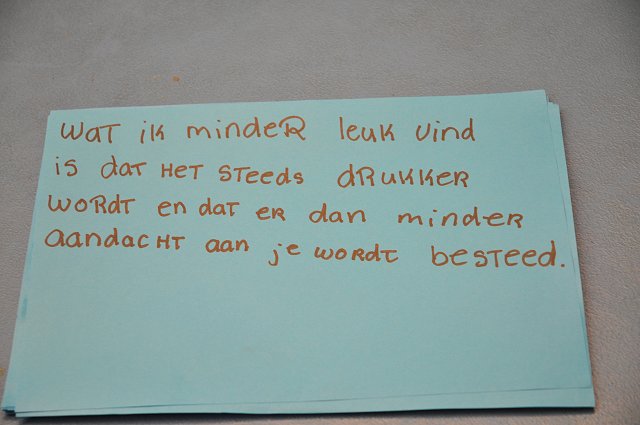 Wat ik minder leuk vind
is dat het steeds drukker
wordt en dat er dan minder
aandacht aan je wordt besteed.